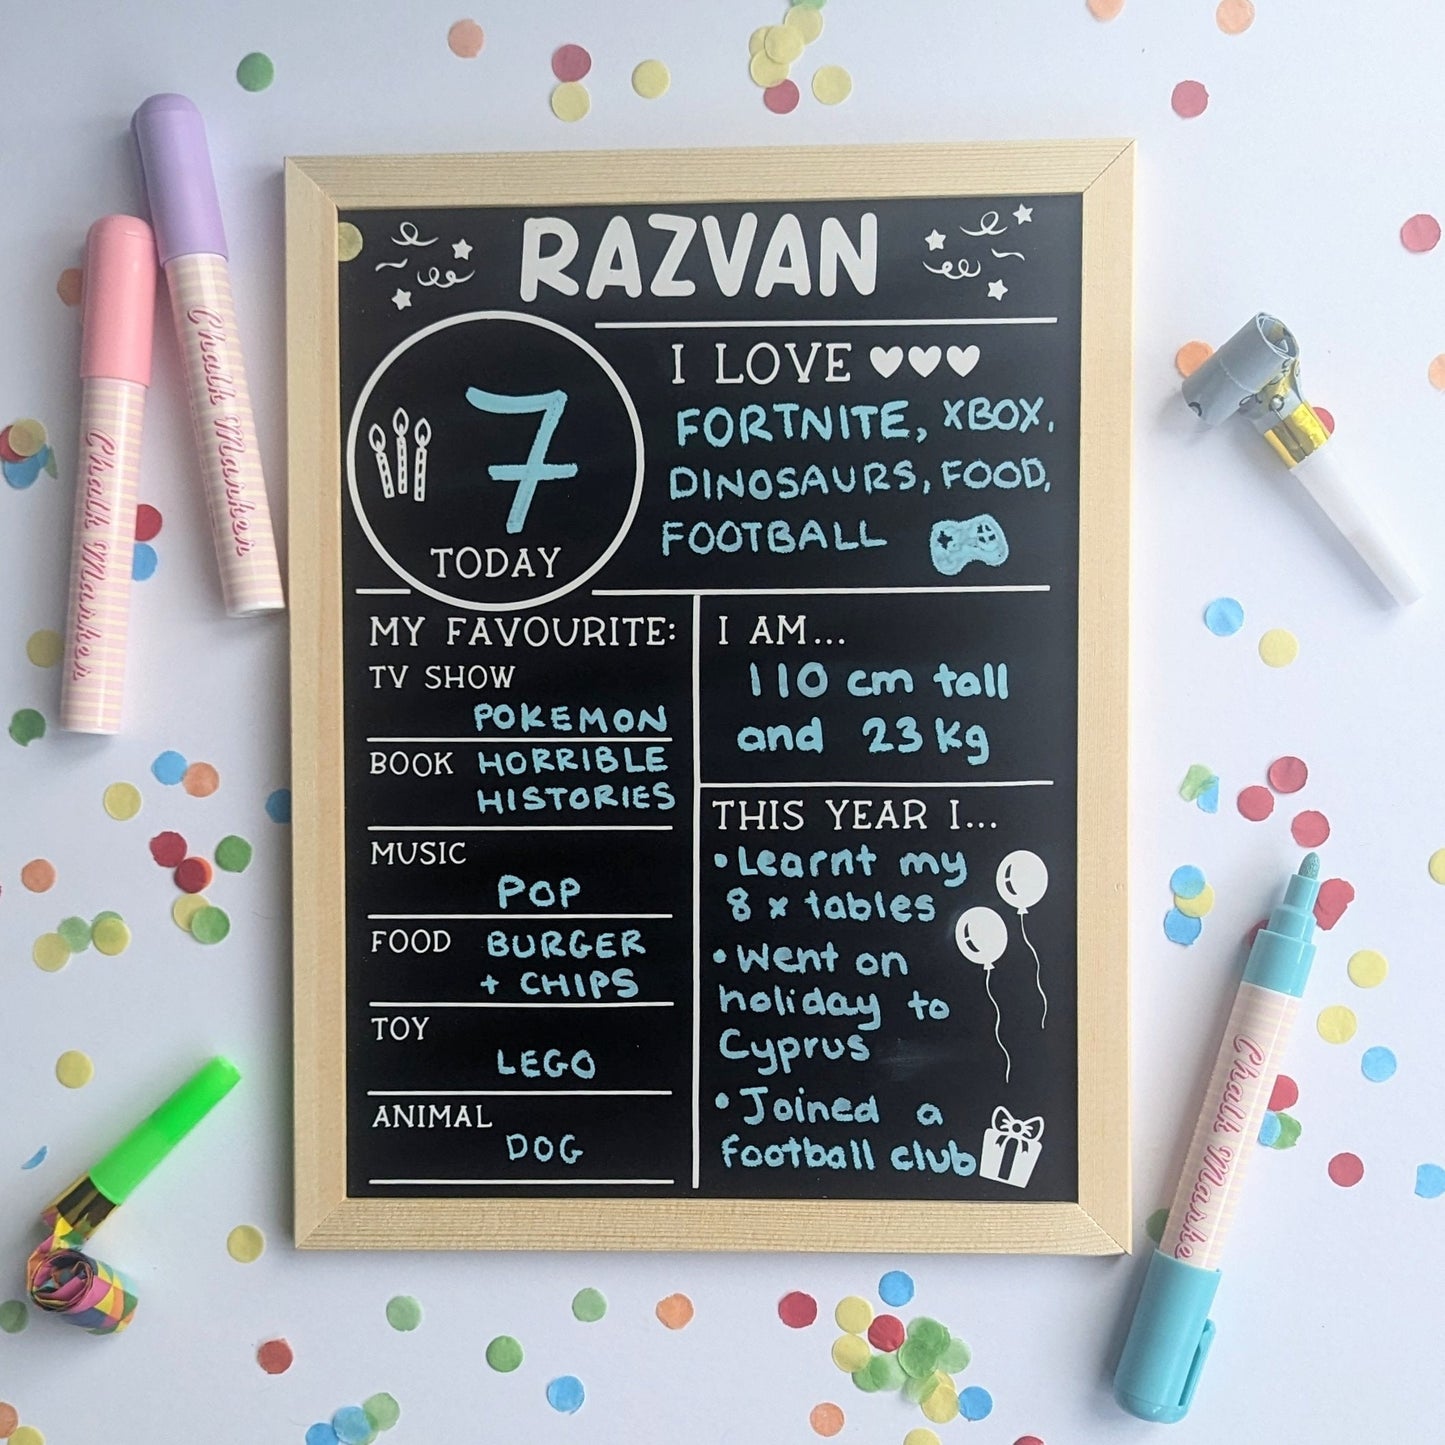 RAZVAN
7
TODAY
I LOVE
FORTNITE, XBOX,
DINOSAURS, FOOD,
FOOTBALL
MY FAVOURITE:
TV SHOW
POKEMON
BOOK HORRIBLE
HISTORIES
MUSIC
POP
FOOD BURGER
+ CHIPS
TOY
LEGO
ANIMAL
DOG
I AM...
110 cm tall
and 23 kg
THIS YEAR I...
• Learnt my
8 x tables
• Went on
holiday to
Cyprus
• Joined a
football club
Chalk Marker
Chalk Marker
Chalk Marke